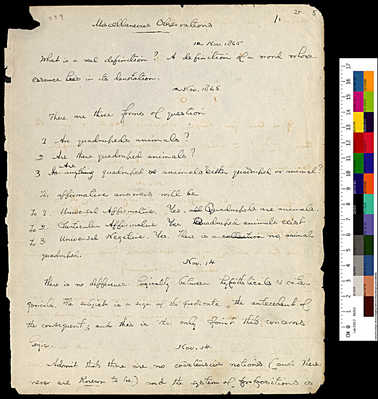 Miscellaneous Observations
1865 Nov. 12
What is a real definition? A definition of a word whose
essence lies in its denotation.
Nov. 1865
There are three forms of question
1 Are quadrupeds animals?
2 Are there quadruped animals?
3 Are animals either quadruped or
The affirmative answers will be
To 1 Universal Affirmative. Yes. Quadrupeds are animals.
To 2 Particular Affirmative Yes. Quadruped animals exist
To 3 Universal Negative. Yes. There is no animal
quadruped.
Nov. 14
There is no difference logically between hypotheticals & cate-
goricals. The subject is a sign of the predicate, the antecedent of
the consequent; and this is the only point that concerns
logic.
Nov. 14
Admit that there are no coextensive notions (and there
never are known to be) and the system of propositions is